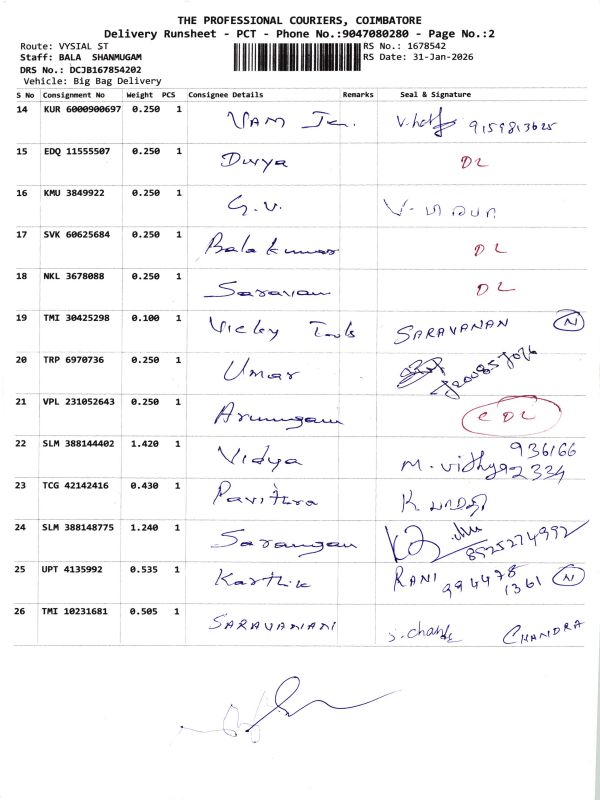 THE PROFESSIONAL COURIERS, COIMBATORE
Delivery Runsheet - PCT - Phone No.:9047080280 - Page No.:2
Route: VYSIAL ST RS No.: 1678542
Staff: BALA SHANMUGAM RS Date: 31-Jan-2026
DRS No.: DCJB167854202
Vehicle: Big Bag Delivery
S No Consignment No Weight PCS Consignee Details Remarks Seal & Signature
14 KUR 6000900697 0.250 1 VAM 9159813625
15 EDQ 11555507 0.250 1 Divya DL
16 KMU 3849922 0.250 1 G.V.
17 SVK 60625684 0.250 1 Bala kumar DL
18 NKL 3678088 0.250 1 Saravan DL
19 TMI 30425298 0.100 1 Vicky Tools SARAVANAN N
20 TRP 6970736 0.250 1 Umar
21 VPL 231052643 0.250 1 Arumugam CDL
22 SLM 388144402 1.420 1 Vidya M. Vidhya 936166
92334
23 TCG 42142416 0.430 1 Pavithra K
24 SLM 388148775 1.240 1 Sarangan 8925274992
25 UPT 4135992 0.535 1 Karthik RANI 994478
1361 N
26 TMI 10231681 0.505 1 SARAVANAN CHANDRA